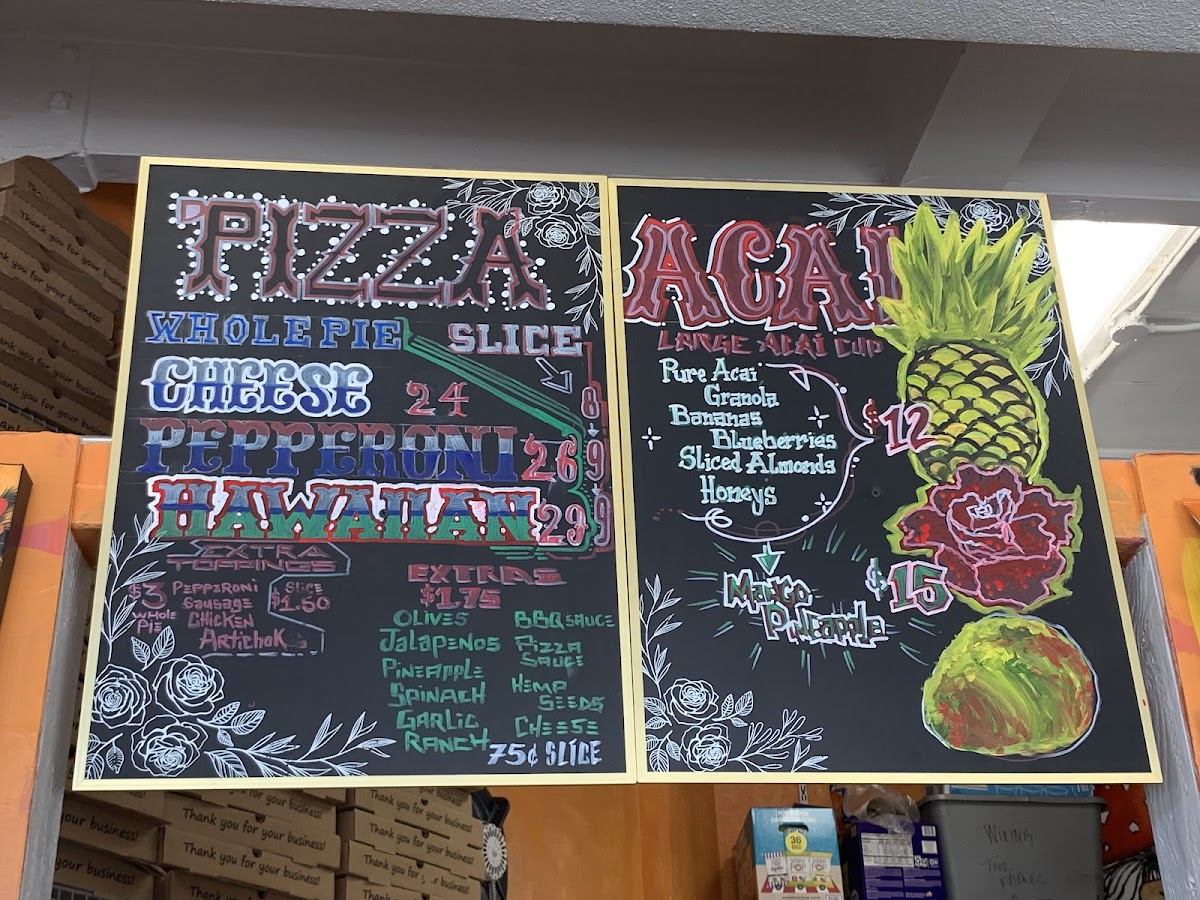 PIZZA
WHOLE PIE SLICE
CHEESE 24 8
PEPPERONI 26 9
HAWAIIAN 29 9
EXTRA
TOPPINGS
$3 WHOLE PIE
PEPPERONI
SAUSAGE
CHICKEN
ARTICHOK
SLICE
$1.50
EXTRAS
$1.75
OLIVES
JALAPENOS
PINEAPPLE
SPINACH
GARLIC
RANCH
BBQ SAUCE
PIZZA
SAUCE
HEMP
SEEDS
CHEESE
75¢ SLICE
ACAI
LARGE ACAI CUP
Pure Acai
Granola
Bananas
Blueberries
Sliced Almonds
Honeys
$12
Mango
Pineapple
$15
Thank you for your business!
Thank you for your business!
Thank you for your business!
Thank you for your business!
Thank you for your business!
Thank you for your business!
36
WIRING